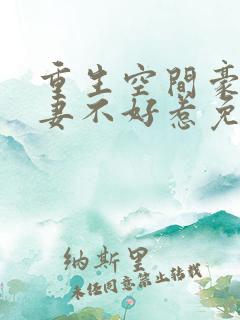 重生空間豪
妻不好惹免
納斯里
未经同意禁止转载